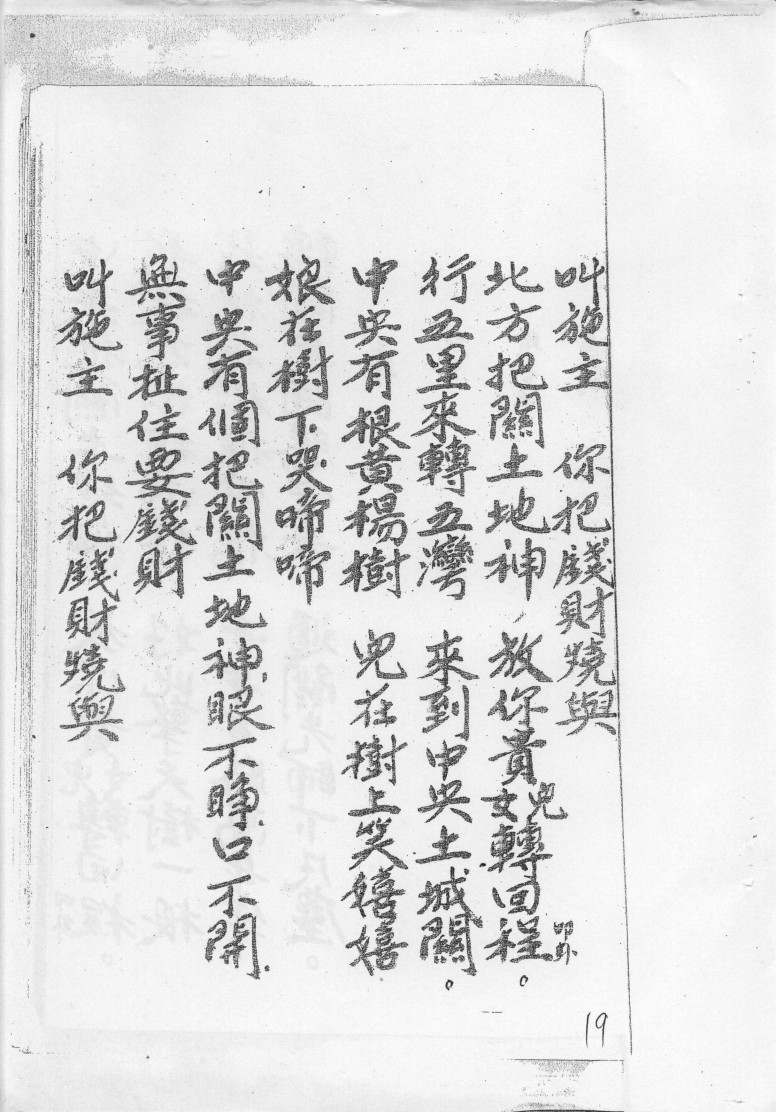 叫施主　你把錢財燒與
北方把關土地神　放你貴女兒轉回程。
行五里來轉五灣　來到中央土城關。
中央有根黃楊樹　兒在樹上笑嘻嘻
娘在樹下哭啼啼
中央有個把關土地神眼不睜口不開
無事扯住要錢財
叫施主　你把錢財燒與
19